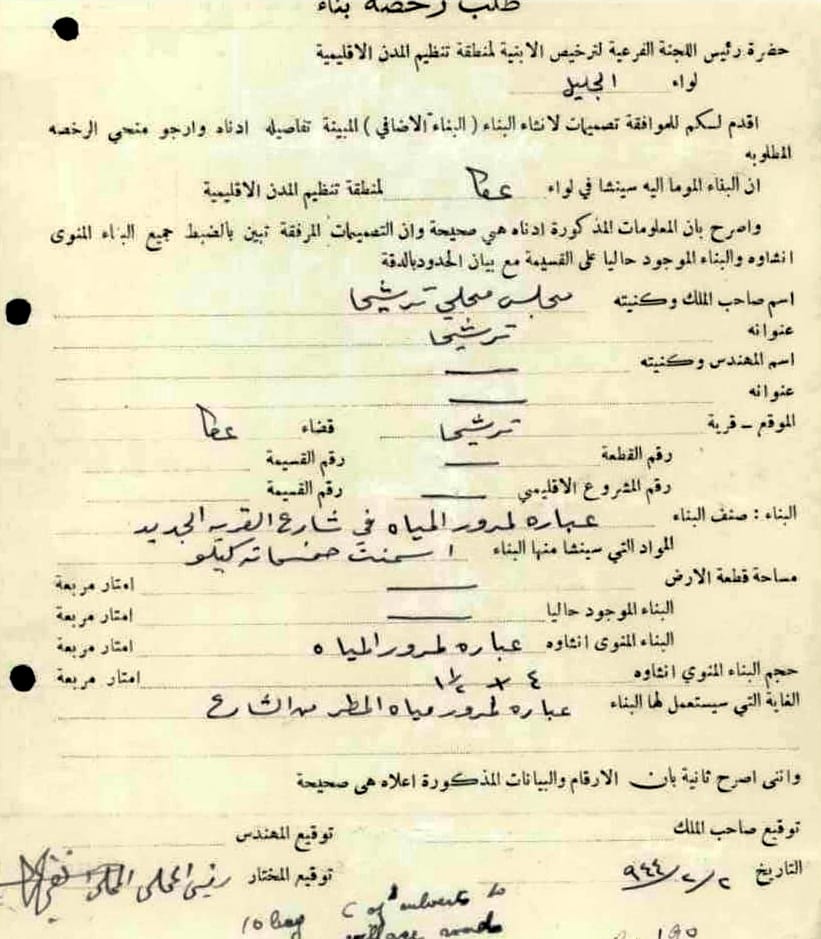 طلب رخصة بناء
حضرة رئيس اللجنة الفرعية لترخيص الابنية لمنطقة تنظيم المدن الاقليمية
لواء الجليل
اقدم لكم للموافقة تصميمات لانشاء البناء ( البناء الاضافي ) المبينة تفاصيله ادناه وارجو منحي الرخصه
المطلوبه
ان البناء الموما اليه سينشا في لواء عكا لمنطقة تنظيم المدن الاقليمية
واصرح بان المعلومات المذكورة ادناه هي صحيحة وان التصميمات المرفقة تبين بالضبط جميع البناء المنوى
انشاوه والبناء الموجود حاليا على القسيمة مع بيان الحدود بالدقة
اسم صاحب الملك وكنيته مجلس محلي ترشيحا
عنوانه ترشيحا
اسم المهندس وكنيته
عنوانه
الموقع - قرية ترشيحا قضاء عكا
رقم القطعة رقم القسيمة
رقم المشروع الاقليمي رقم القسيمة
البناء : صنف البناء عباره لمرور المياه في شارع القريه الجديد
المواد التي سينشا منها البناء اسمنت خمسمائه كيلو
مساحة قطعة الارض امتار مربعة
البناء الموجود حاليا امتار مربعة
البناء المنوى انشاوه عباره لمرور المياه امتار مربعة
حجم البناء المنوي انشاوه ٤ × ١ ١/٢ امتار مربعة
الغاية التي سيستعمل لها البناء عباره لمرور مياه المطر من الشارع
وانى اصرح ثانية بان الارقام والبيانات المذكورة اعلاه هى صحيحة
توقيع صاحب الملك توقيع المهندس
التاريخ ٢/٢/٩٤٤ توقيع المختار رئيس المجلس المحلي
10 bag of culverts to
village roads